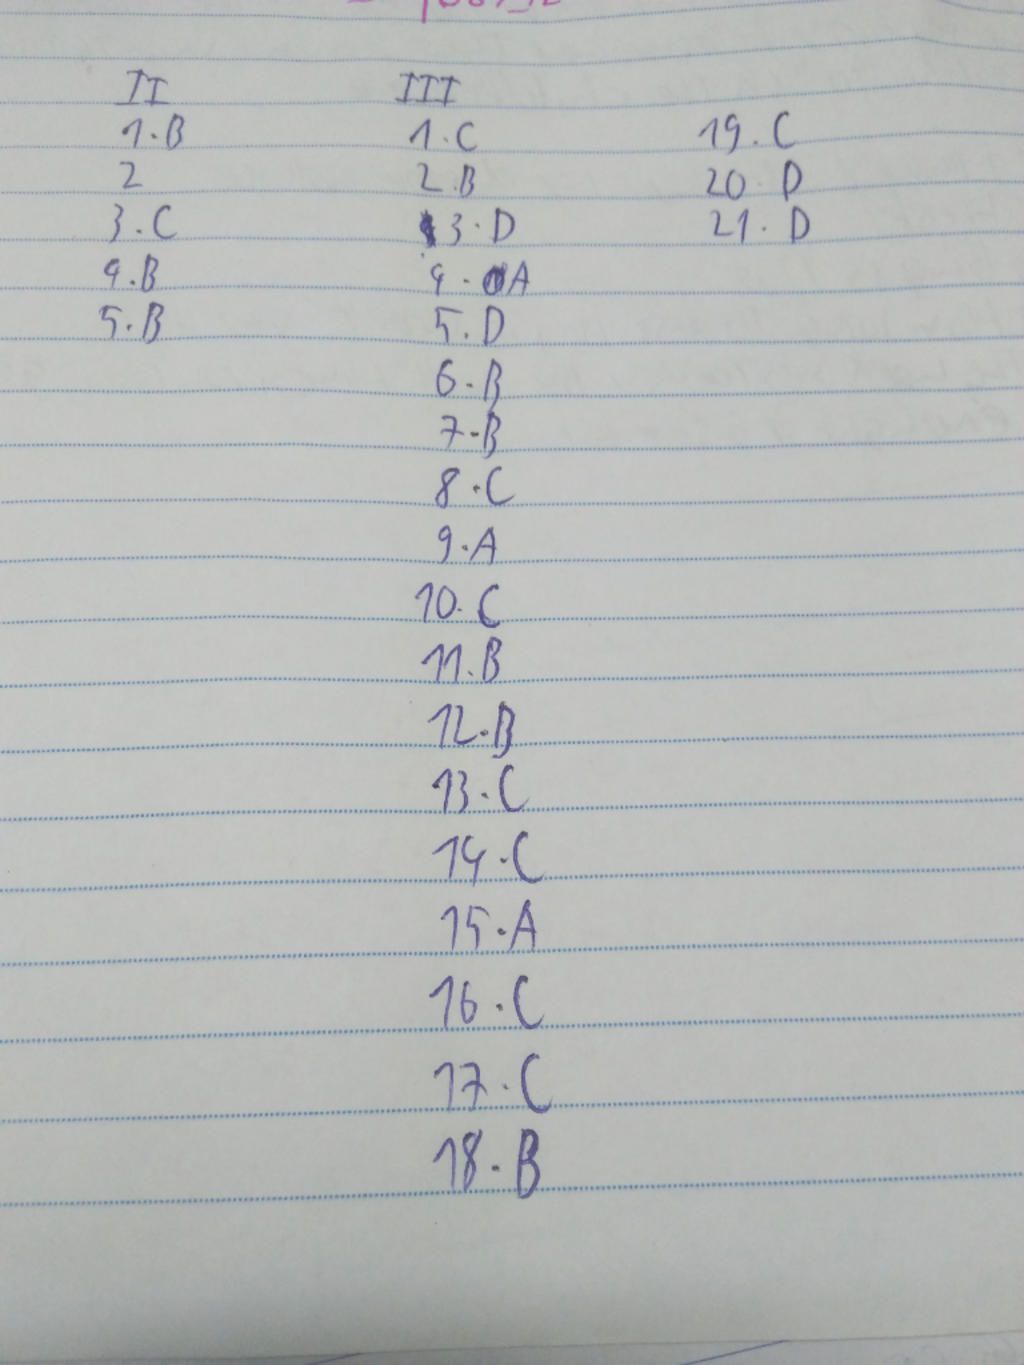 II
1.B
2
3.C
4.B
5.B
III
1.C
2.B
3.D
4.A
5.D
6.B
7.B
8.C
9.A
10.C
11.B
12.B
13.C
14.C
15.A
16.C
17.C
18.B
19.C
20.D
21.D